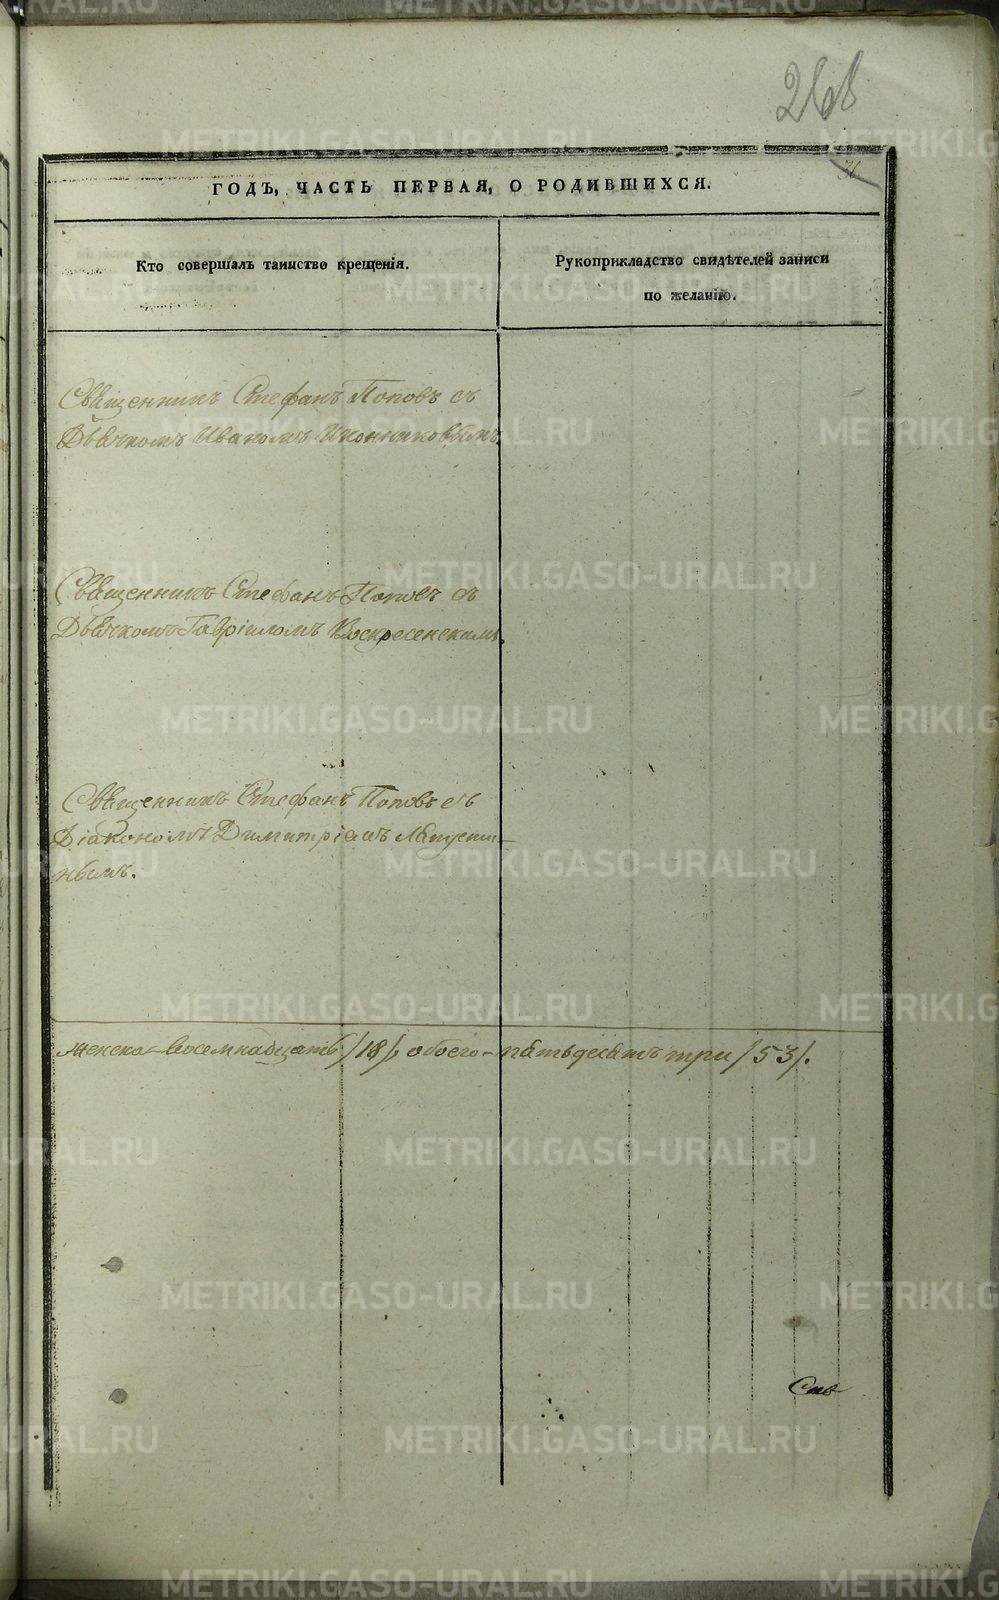 268
ГОДЪ, ЧАСТЬ ПЕРВАЯ, О РОДИВШИХСЯ.
Кто совершалъ таинство крещенія.
Рукоприкладство свидѣтелей записи
по желанію.
Священникъ Стефанъ Поповъ съ
Дьячкомъ Иваномъ Иконниковымъ
Священникъ Стефанъ Поповъ съ
Дьячкомъ Гавріиломъ Воскресенскимъ.
Священникъ Стефанъ Поповъ съ
Діакономъ Димитріемъ
нымъ.
женска – восемнадцать /18/, обоего – пятьдесятъ три /53/.
METRIKI.GASO-URAL.RU